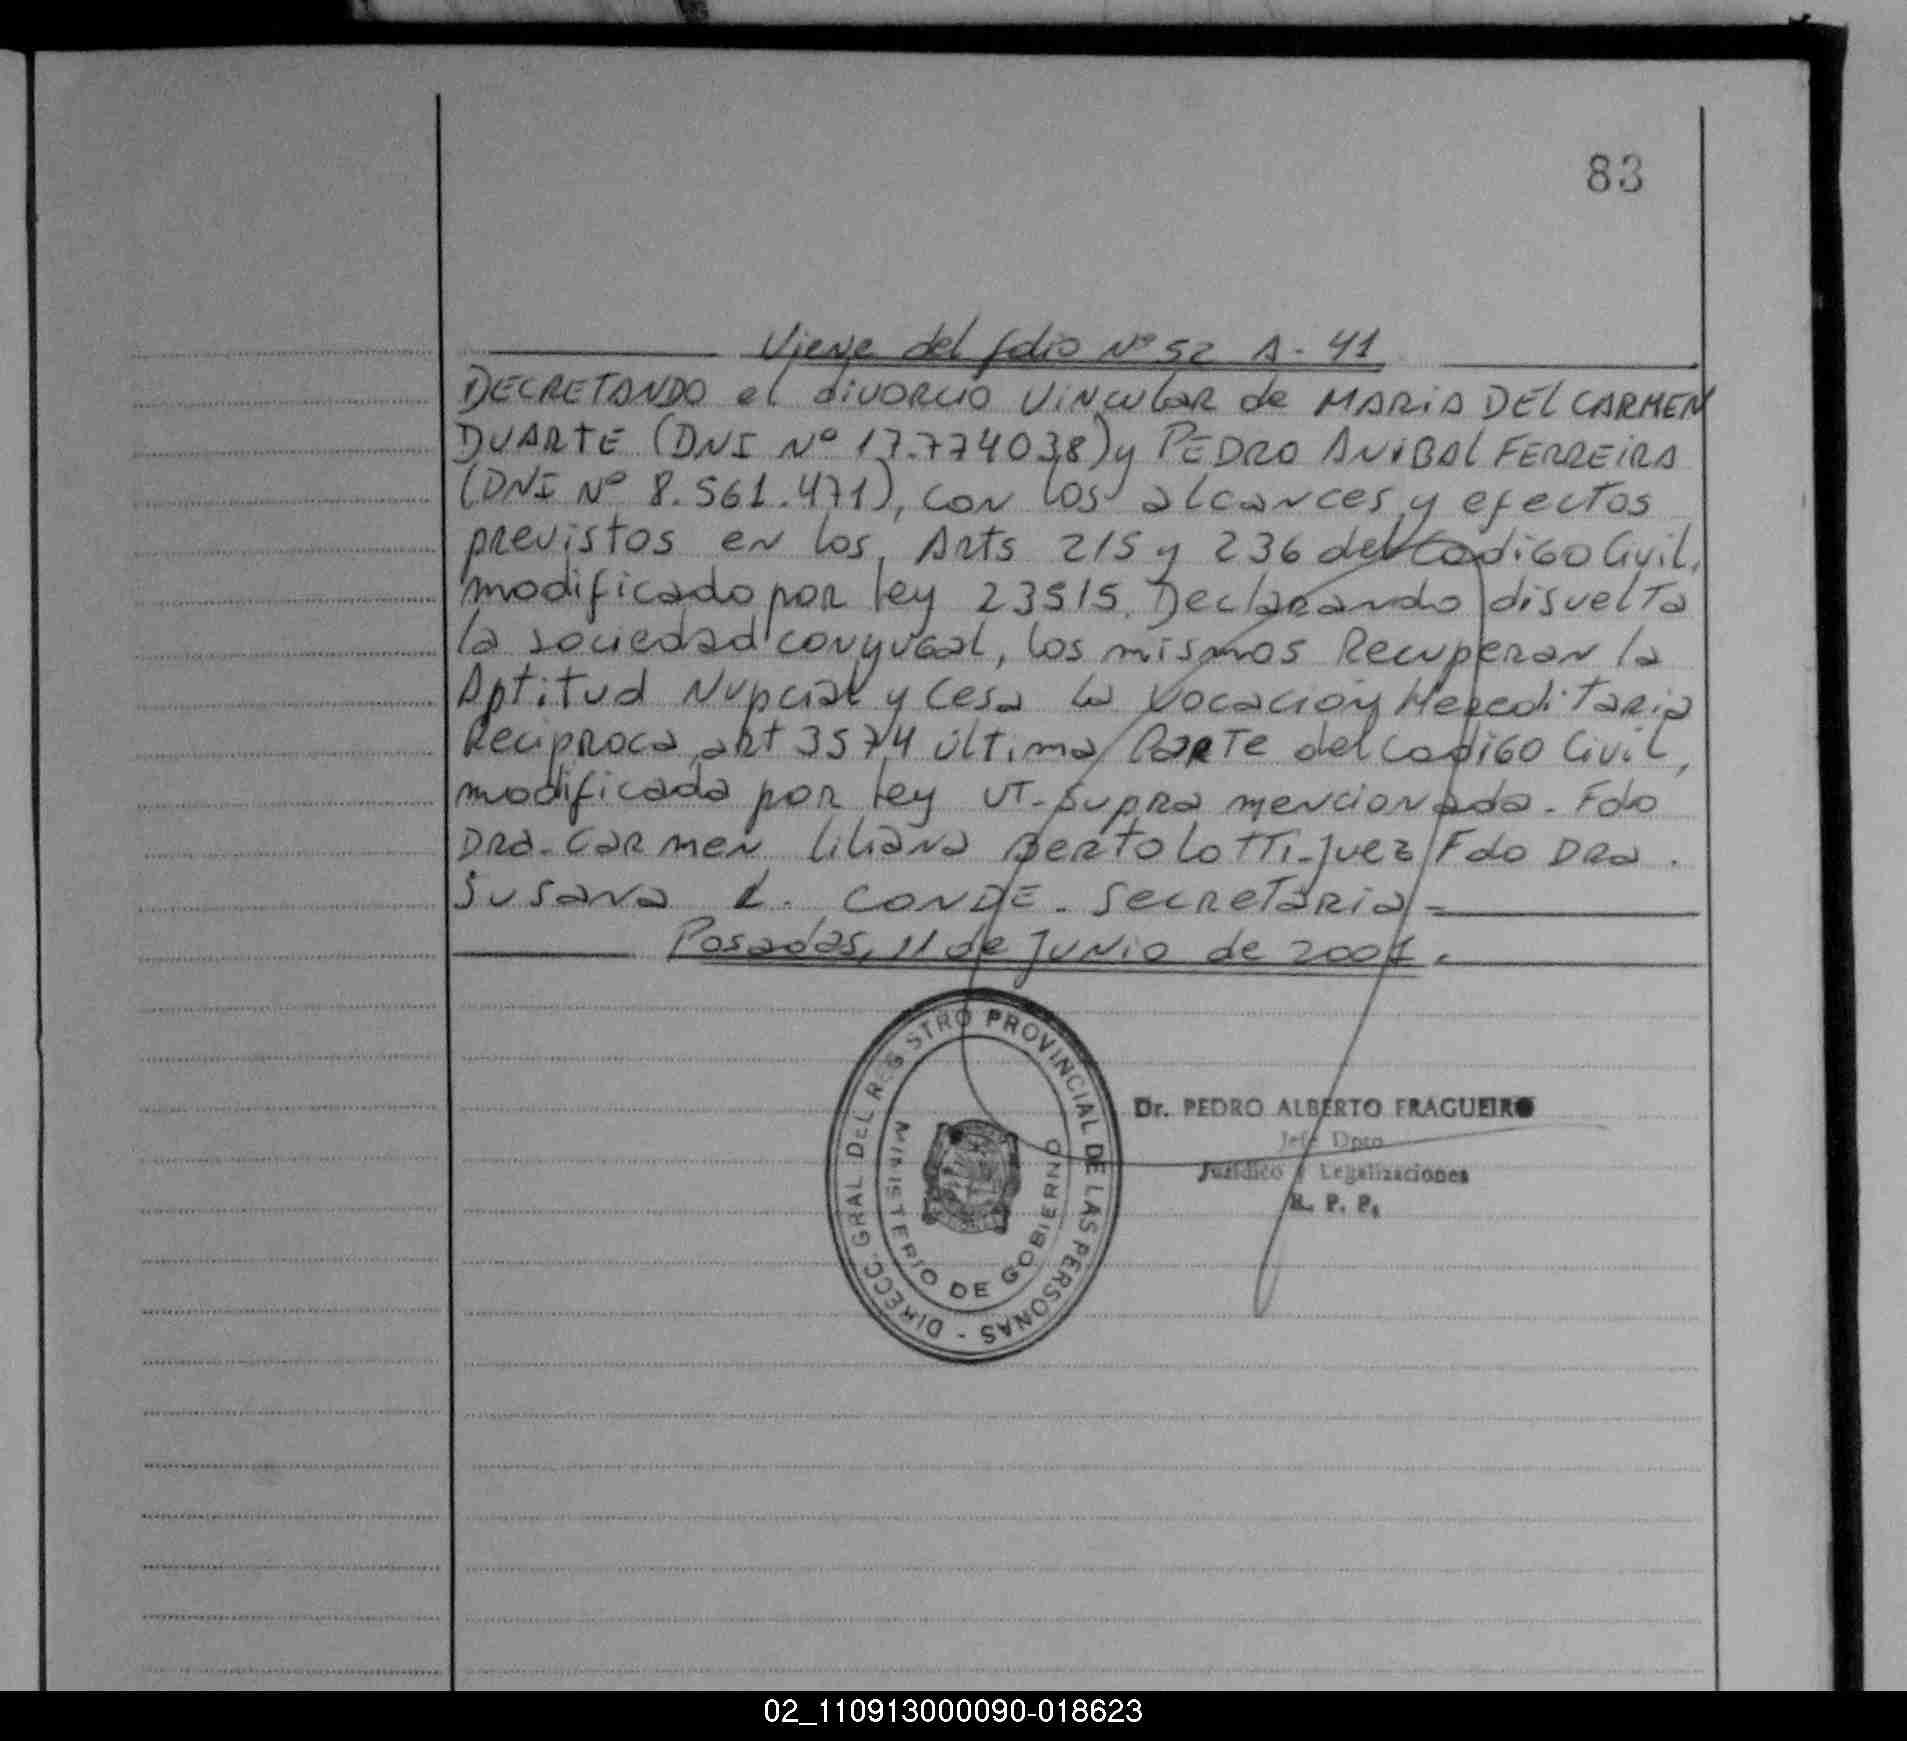 83
Viene del folio Nº 52 A - 41
DECRETANDO el divorcio vincular de MARIA DEL CARMEN
DUARTE (DNI Nº 17.774038) y PEDRO ANIBAL FERREIRA
(DNI Nº 8.561.471), con los alcances y efectos
previstos en los, Arts 215 y 236 del Codigo Civil,
modificado por ley 23515. Declarando disuelta
la sociedad conyugal, los mismos Recuperan la
Aptitud Nupcial y cesa la vocacion Hereditaria
Reciproca, art 3574 última Parte del Codigo Civil,
modificada por ley UT-supra mencionada. Fdo
Dra. Carmen Liliana Bertolotti-Juez Fdo Dra.
Susana L. CONDE. Secretaria -
Posadas, 11 de Junio de 2001.
DIRECC. GRAL DEL REGISTRO PROVINCIAL DE LAS PERSONAS -
MINISTERIO DE GOBIERNO
Dr. PEDRO ALBERTO FRAGUEIRO
Jefe Dpto
Jurídico y Legalizaciones
R. P. P.
02_110913000090-018623